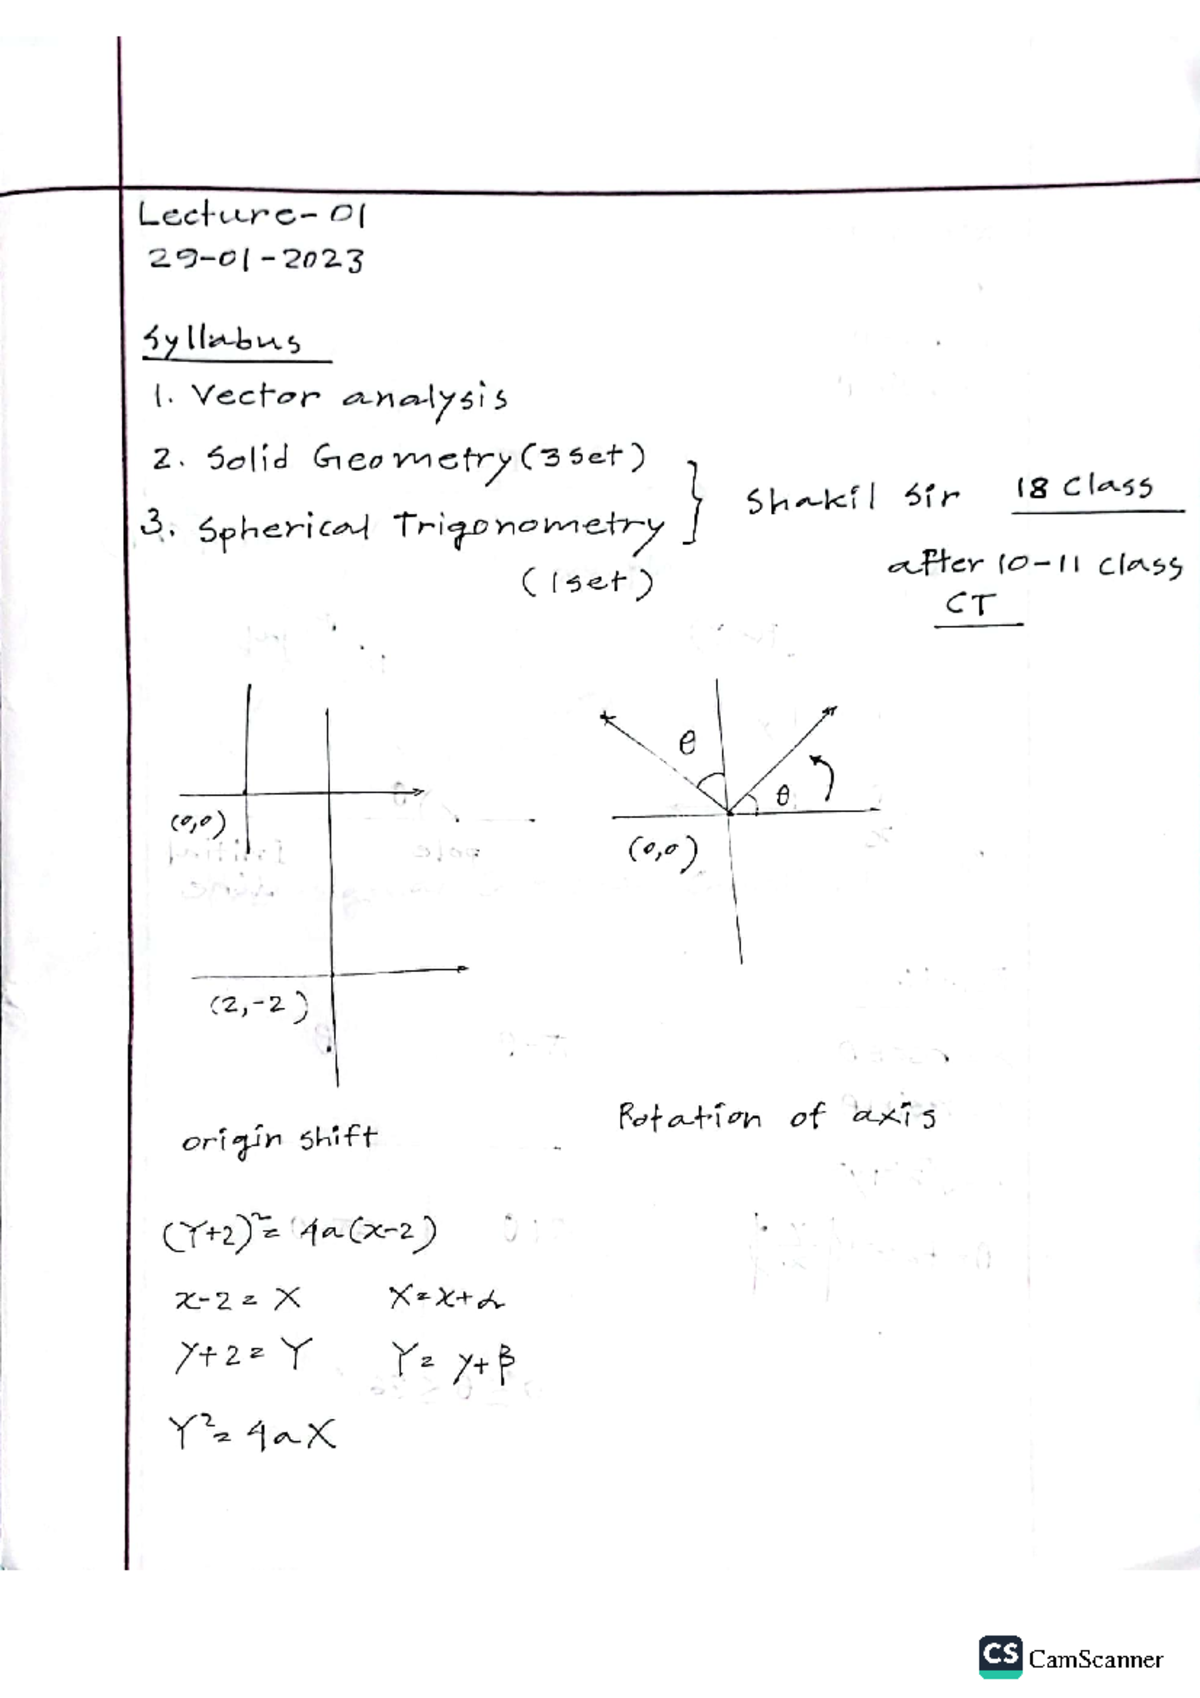 Lecture-01
29-01-2023
Syllabus
1. Vector analysis
2. Solid Geometry (3 set)
3. Spherical Trigonometry
(1 set)
} Shakil Sir 18 Class
after 10-11 class
CT
(0,0)
(2,-2)
origin shift
θ
θ
(0,0)
Rotation of axis
(Y+2)²= 4a(x-2)
x-2 = X X=x+α
y+2 = Y Y= y+β
Y²= 4aX
CS CamScanner